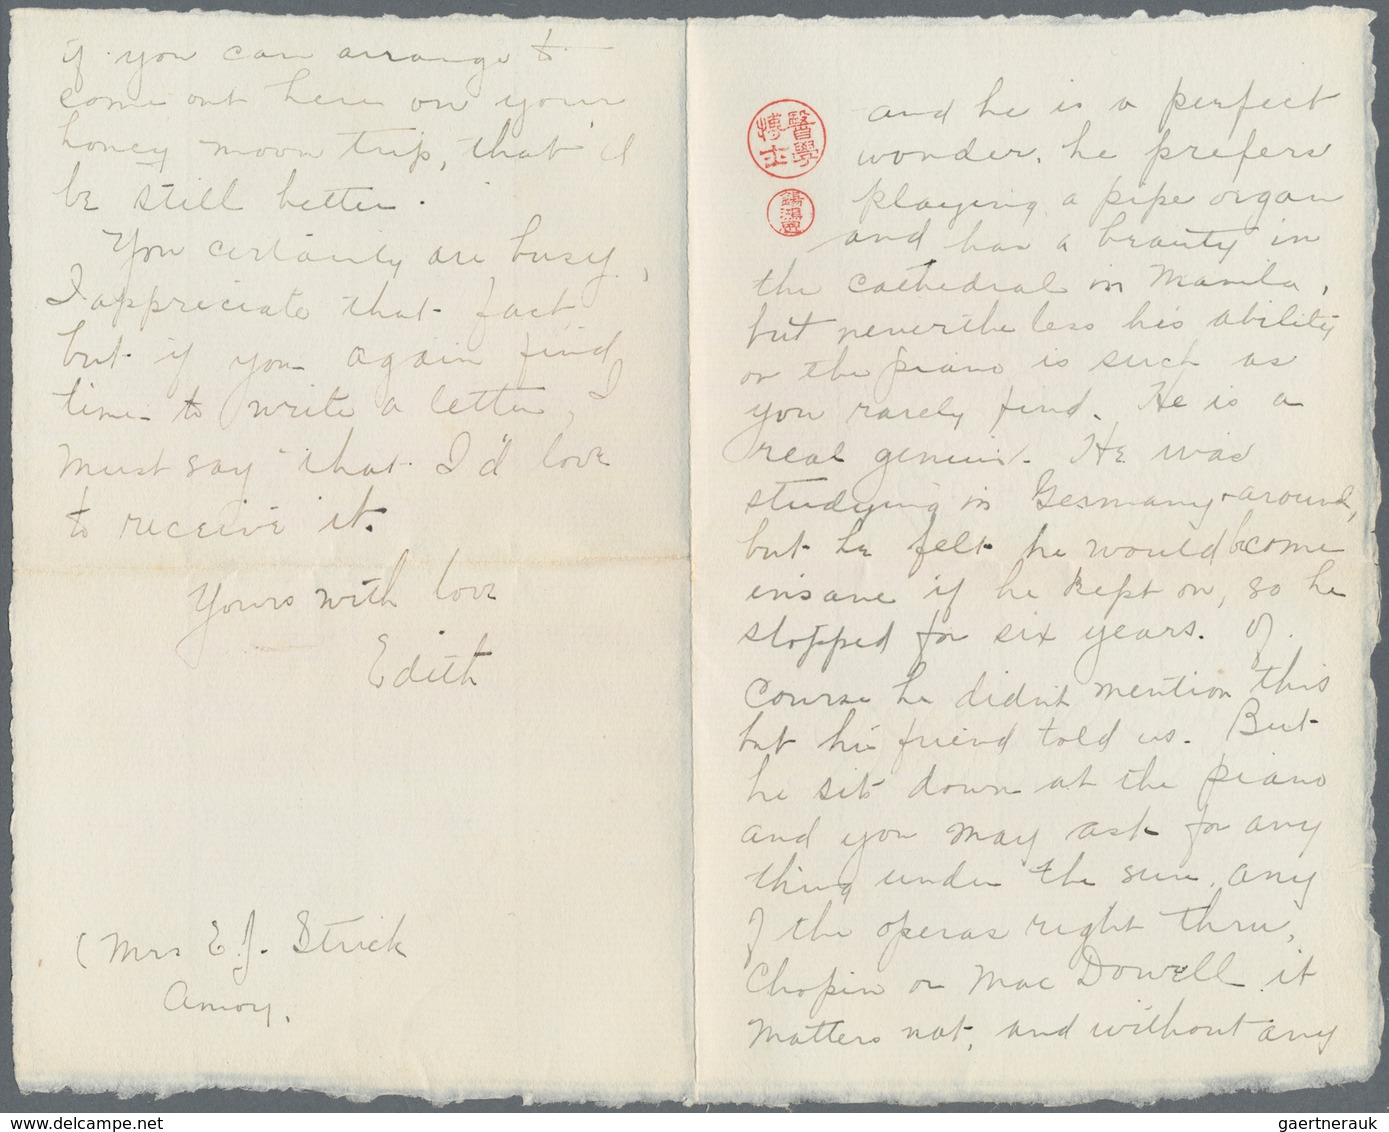 if you can arrange to
come out here on your
honey moon trip, that'd
be still better.
You certainly are busy,
I appreciate that fact
but if you again find
time to write a letter, I
must say that I'd love
to receive it.
Yours with love
Edith
(Mrs E. J. Strick
Amoy.
醫學
博士
錫鴻恩
and he is a perfect
wonder, he prefers
playing a pipe organ
and has a beauty in
the cathedral in Manila,
but nevertheless his ability
on the piano is such as
you rarely find. He is a
real genius. He was
studying in Germany + around,
but he felt he would become
insane if he kept on, so he
stopped for six years. Of
course he didn't mention this
but his friend told us. But
he sits down at the piano
and you may ask for any
thing under the sun, any
of the operas right thru,
Chopin or Mac Dowell it
matters not, and without any
www.delcampe.net
gaertnerauk